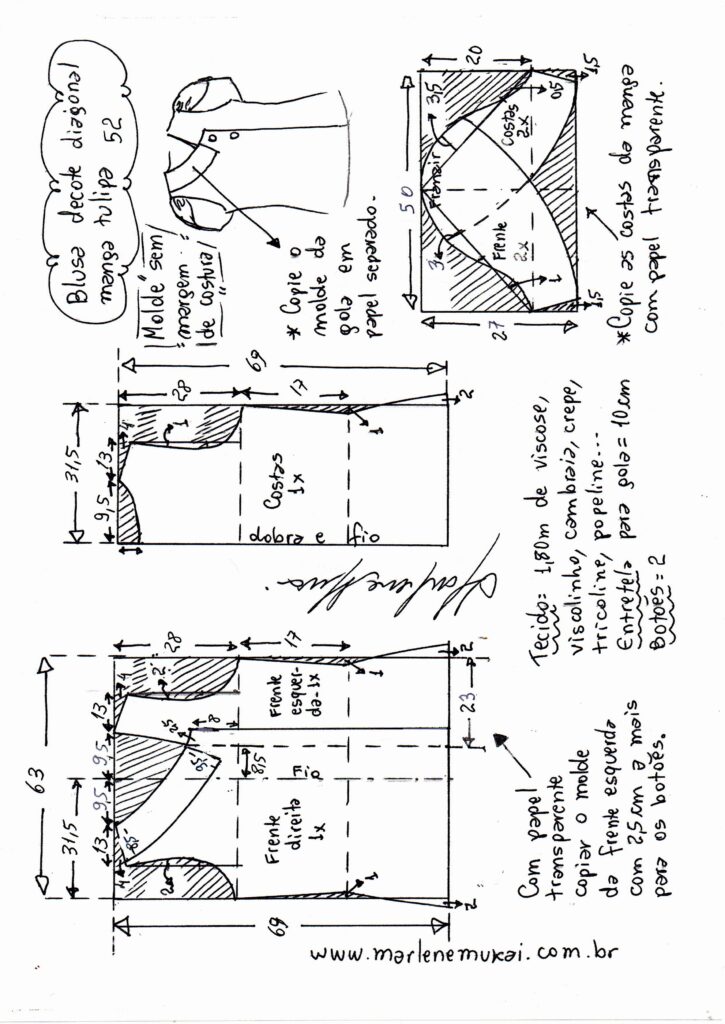 Blusa decote diagonal
manga tulipa 52
Molde "sem
margem
de costura"
* Copie o
molde da
gola em
papel separado.
50
27
20
3,5
3
Franzir
Costas
2x
Frente
2x
0,5
1
1,5
1,5
* Copie as costas da manga
com papel transparente.
31,5
9,5
13
4
1
1
28
17
69
Costas
1x
dobra e fio
1
2
63
31,5
13
9,5
9,5
13
4
4
2
2
28
17
8
8,5
23
Frente
esquer-
da-1x
Fio
Frente
direita
1x
1
1
2
2
69
Tecido= 1,80m de viscose,
viscolinho, cambraia, crepe,
tricoline, popeline...
Entretela para gola = 10cm
Botões = 2
Com papel
transparente
copiar o molde
da frente esquerda
com 2,5 cm a mais
para os botões.
www.marlenemukai.com.br